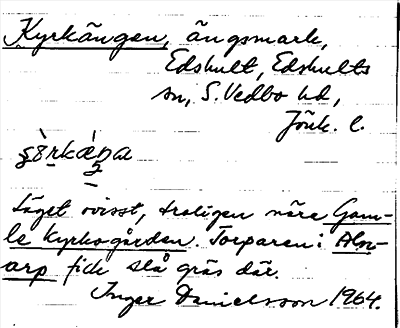 Kyrkängen, ängsmark,
Edshult, Edshults
sn, S. Vedbo hd,
Jönk. l.
Läget ovisst, troligen nära Gam-
le Kyrkogården. Torparen i Aln-
arp fick slå gräs där.
Inger Danielsson 1964.